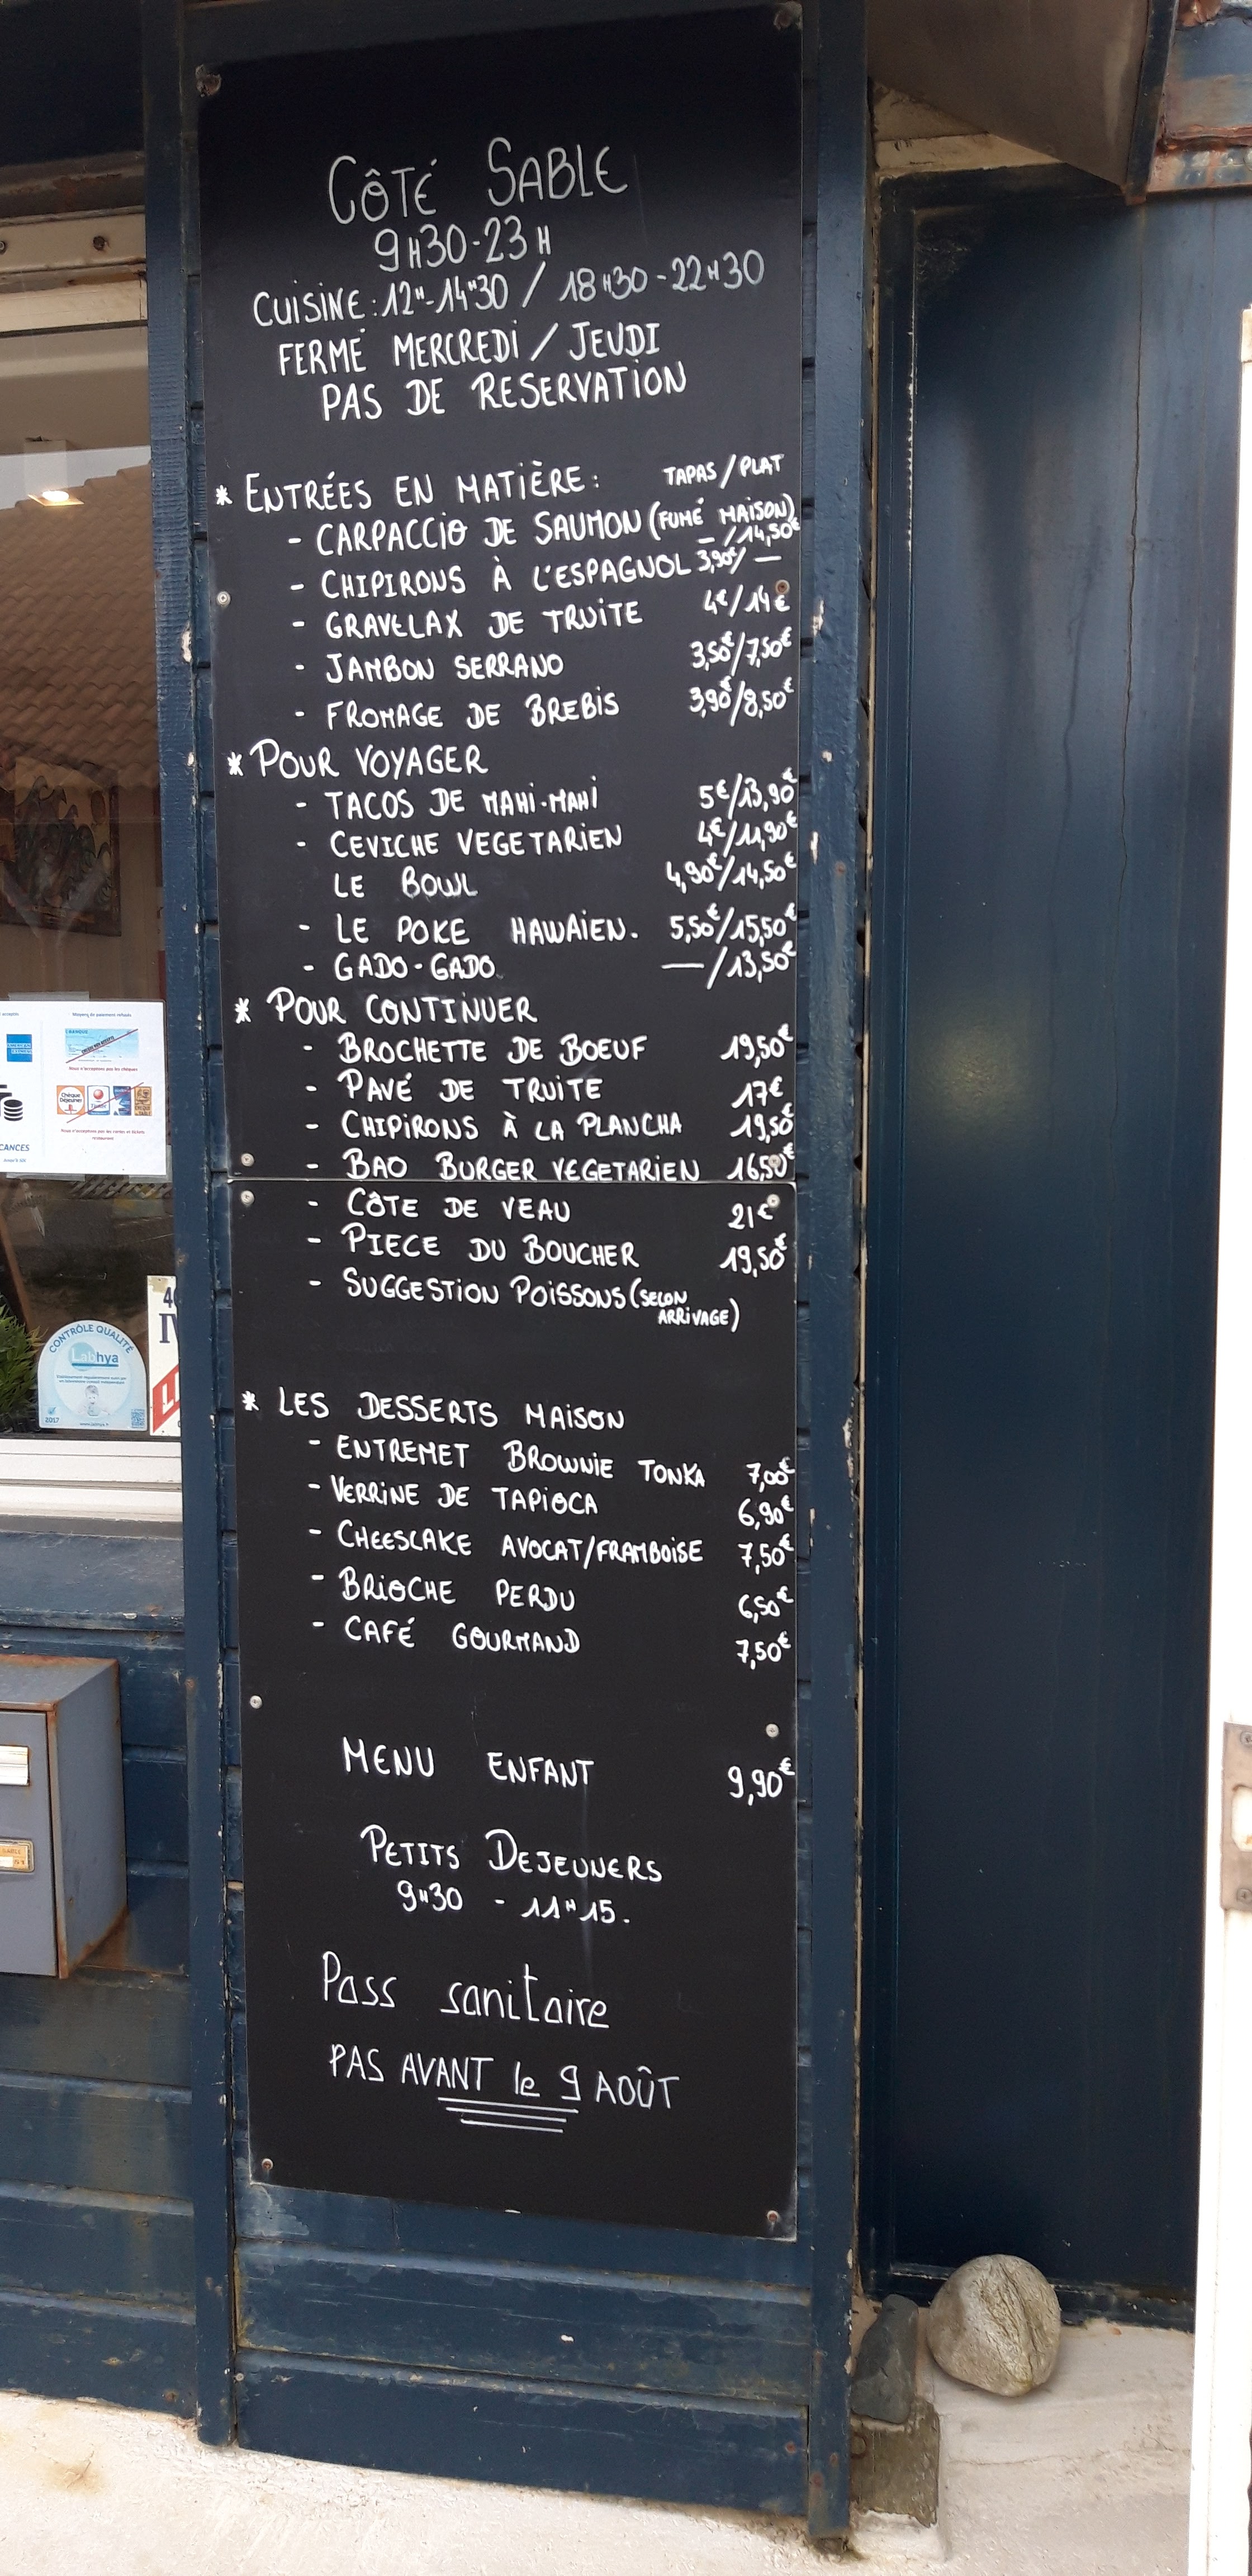 CÔTÉ SABLE
9H30-23H
CUISINE : 12H-14H30 / 18H30-22H30
FERMÉ MERCREDI / JEUDI
PAS DE RESERVATION
* ENTRÉES EN MATIÈRE : TAPAS/PLAT
- CARPACCIO DE SAUMON (FUMÉ MAISON) - /14,50€
- CHIPIRONS À L'ESPAGNOL 3,90€/ —
- GRAVELAX DE TRUITE 4€/14€
- JAMBON SERRANO 3,50€/7,50€
- FROMAGE DE BREBIS 3,90€/8,50€
* POUR VOYAGER
- TACOS DE MAHI-MAHI 5€/13,90€
- CEVICHE VEGETARIEN 4€/11,90€
LE BOWL 4,90€/14,50€
- LE POKE HAWAIEN. 5,50€/15,50€
- GADO-GADO —/13,50€
* POUR CONTINUER
- BROCHETTE DE BOEUF 19,50€
- PAVÉ DE TRUITE 17€
- CHIPIRONS À LA PLANCHA 19,50€
- BAO BURGER VEGETARIEN 16,50€
- CÔTE DE VEAU 21€
- PIECE DU BOUCHER 19,50€
- SUGGESTION POISSONS (SELON
ARRIVAGE)
* LES DESSERTS MAISON
- ENTREMET BROWNIE TONKA 7,00€
- VERRINE DE TAPIOCA 6,90€
- CHEESCAKE AVOCAT/FRAMBOISE 7,50€
- BRIOCHE PERDU 6,50€
- CAFÉ GOURMAND 7,50€
MENU ENFANT 9,90€
PETITS DEJEUNERS
9H30 - 11H15.
Pass sanitaire
PAS AVANT le 9 AOÛT
Moyens de paiement refusés
Nous n'acceptons pas les chèques
CANCES
CONTRÔLE QUALITÉ
Labhya
2017